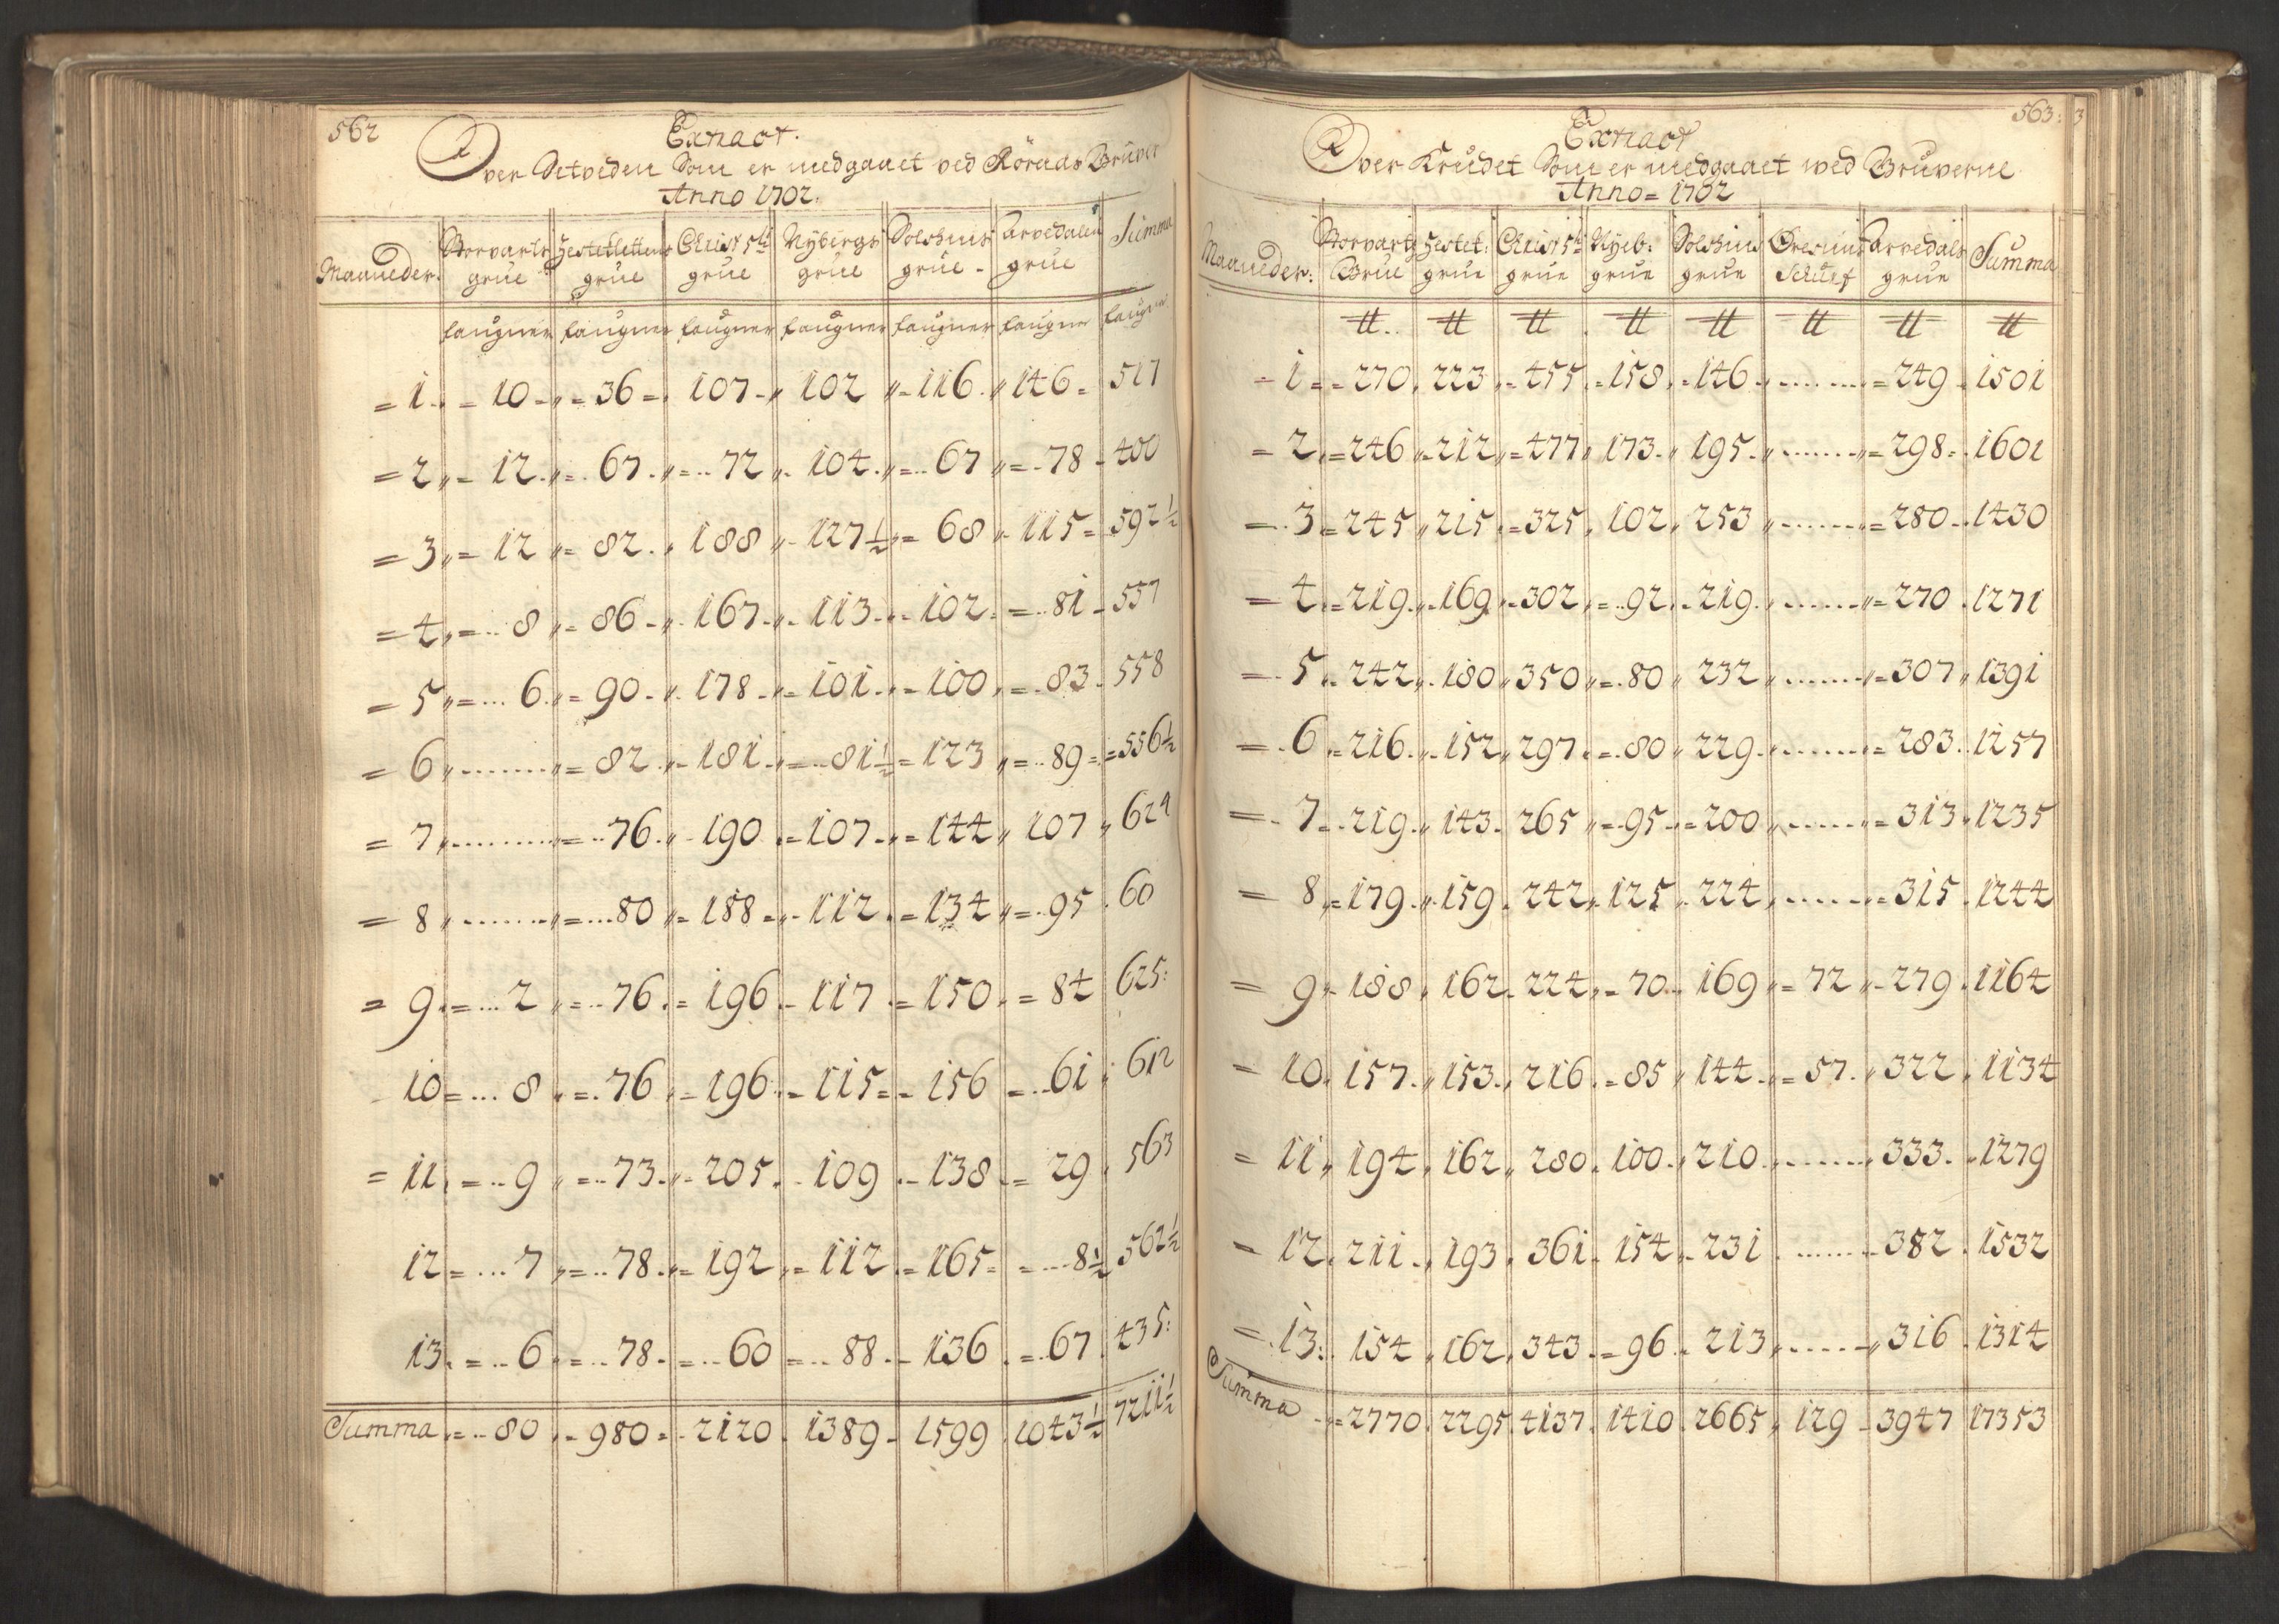 562
Extract.
Over Setveden Som er medgaaet ved Röraas Gruver
Anno 1702.
Maaneder. Storvarts grue Hestetlettens grue Christ 5ti grue Nybergs grue Solskins grue - Arvedalen grue Summa
faugner faugner faugner faugner faugner faugner faugner
= 1. = 10 = 36 = 107 = 102 = 116 = 146 = 517
= 2 = 12 = 67 = 72 = 104 = 67 = 78 = 400
= 3 = 12 = 82 = 188 = 127½ = 68 = 115 = 592½
= 4 = 8 = 86 = 167 = 113 = 102 = 81 = 557
= 5 = 6 = 90 = 178 = 101 = 100 = 83 = 558
= 6 ........ = 82 = 181 = 81½ = 123 = 89 = 556½
= 7 ........ = 76 = 190 = 107 = 144 = 107 = 624
= 8 ........ = 80 = 188 = 112 = 134 = 95 . 60
= 9 = 2 = 76 = 196 = 117 = 150 = 84 625:
10 = 8 = 76 = 196 = 115 = 156 = 61 612
= 11 = 9 = 73 = 205 = 109 = 138 = 29 . 563
12 = 7 = 78 = 192 = 112 = 165 = 8½ 562½
13 = 6 = 78 = 60 = 88 = 136 = 67 435:
Summa = 80 = 980 = 2120 1389 1599 1043½ 7211½
563:
3
Extract
Over Krudet Som er medgaaet wed Gruverne
Anno = 1702
Maaneder: Storvartz Grue Hestet: grue Christ 5ti grue Nyeb: grue Solskins grue Arvedals grue Summa
℔ ℔ ℔ ℔ ℔ ℔ ℔ ℔
= 1 = 270 223 = 455 = 158 = 146 ........ = 249 1501
= 2 = 246 212 = 477 173 195 ........ = 298 = 1601
= 3 = 245 215 = 325 102 253 ........ = 280 1430
= 4 = 219 169 302 = 92 219 ........ = 270 1271
= 5 242 180 350 = 80 232 ........ = 307 1391
= 6 = 216 152 297 = 80 229 ........ = 283 1257
= 7 219 143 265 = 95 = 200 ........ = 313 1235
= 8 = 179 159 242 125 224 ........ = 315 1244
= 9 188 162 224 = 70 169 = 72 279 1164
= 10 157 153 216 = 85 144 = 57 322 1134
= 11 194 162 280 100 210 ........ 333 1279
= 12 211 193 361 154 231 ........ 382 1532
= 13: 154 162 343 = 96 213 ........ 316 1314
Summa = 2770 2295 4137 1410 2665 129 3947 17353